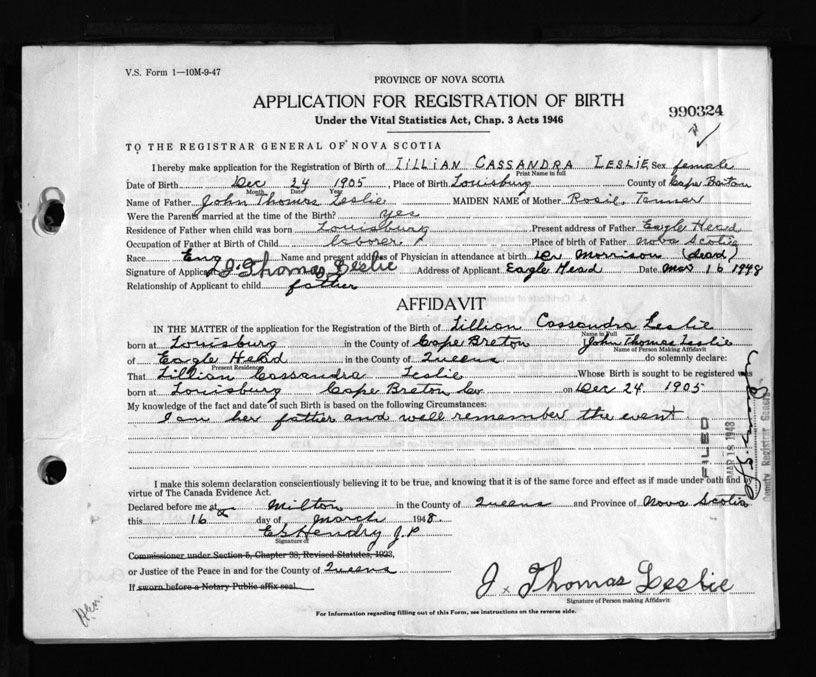 V.S. Form 1—10M-9-47
PROVINCE OF NOVA SCOTIA
APPLICATION FOR REGISTRATION OF BIRTH
990324
Under the Vital Statistics Act, Chap. 3 Acts 1946
TO THE REGISTRAR GENERAL OF NOVA SCOTIA
I hereby make application for the Registration of Birth of LILLIAN CASSANDRA LESLIE Sex female
Print Name in full
Date of Birth Dec 24 1905, Place of Birth Louisburg County of Cape Breton
Month Date Year
Name of Father John Thomas Leslie MAIDEN NAME of Mother Rosie Tanner
Were the Parents married at the time of the Birth? yes
Residence of Father when child was born Louisburg Present address of Father Eagle Head
Occupation of Father at Birth of Child laborer Place of birth of Father Nova Scotia
Race Eng Name and present address of Physician in attendance at birth Dr Morrison (dead)
Signature of Applicant J. Thomas Leslie Address of Applicant Eagle Head Date Mar 16 1948
Relationship of Applicant to child father
AFFIDAVIT
IN THE MATTER of the application for the Registration of the Birth of Lillian Cassandra Leslie
Name in Full
born at Louisburg in the County of Cape Breton John Thomas Leslie
Name of Person Making Affidavit
of Eagle Head in the County of Queens do solemnly declare:
Present Residence
That Lillian Cassandra Leslie Whose Birth is sought to be registered was
born at Louisburg Cape Breton Co on Dec 24. 1905
My knowledge of the fact and date of such Birth is based on the following Circumstances:
I am her father and well remember the event.
FILED
MAR 18 1948
Deputy Registrar General
I make this solemn declaration conscientiously believing it to be true, and knowing that it is of the same force and effect as if made under oath and by
virtue of The Canada Evidence Act.
Declared before me at Milton in the County of Queens and Province of Nova Scotia
this 16 day of March 1948.
E S Hendry J.P
Signature of
Commissioner under Section 5, Chapter 38, Revised Statutes, 1923,
or Justice of the Peace in and for the County of Queens
If sworn before a Notary Public affix seal.
J. Thomas Leslie
Signature of Person making Affidavit
For Information regarding filling out of this Form, see instructions on the reverse side.